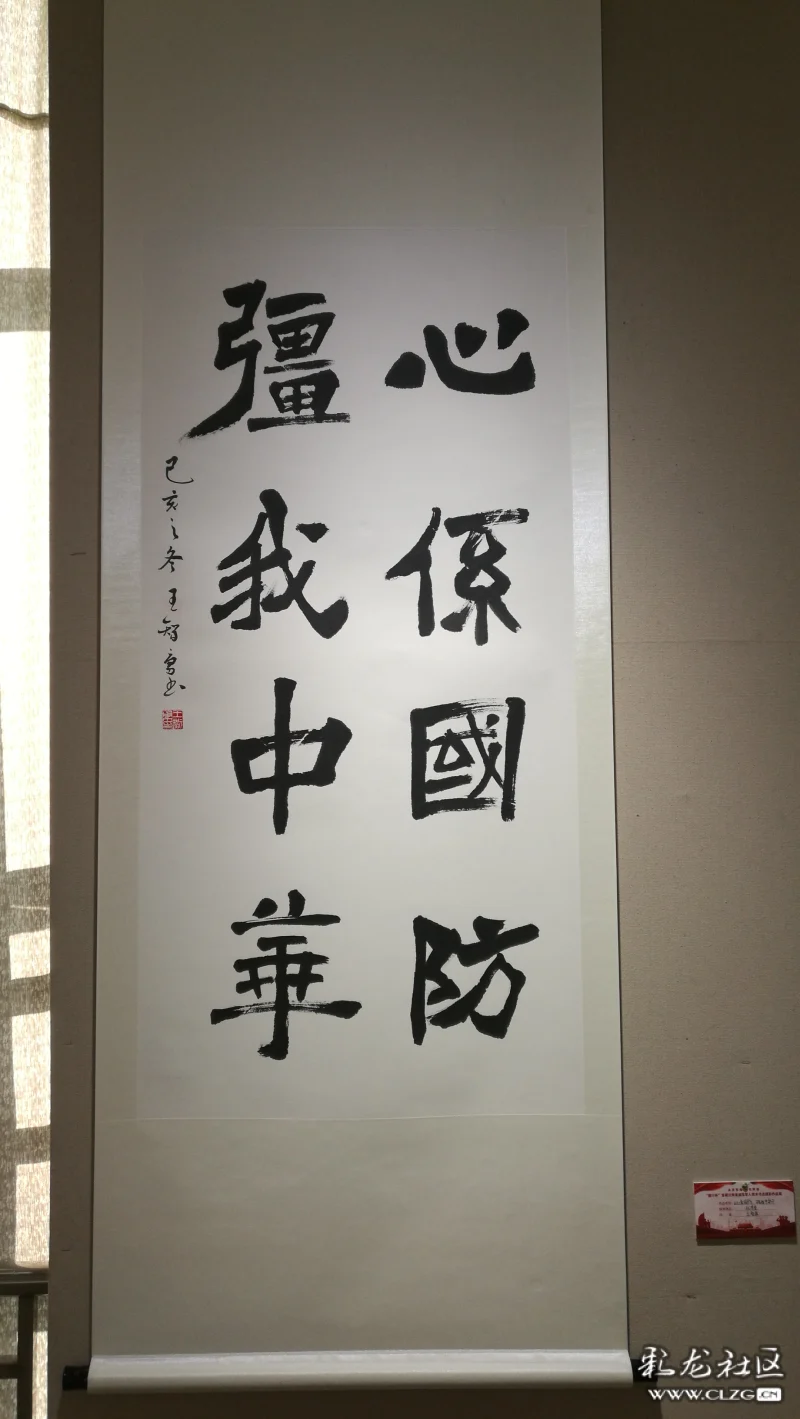 心係國防
彊我中華
己亥之冬王智勇书
彩龙社区
WWW.CLZG.CN